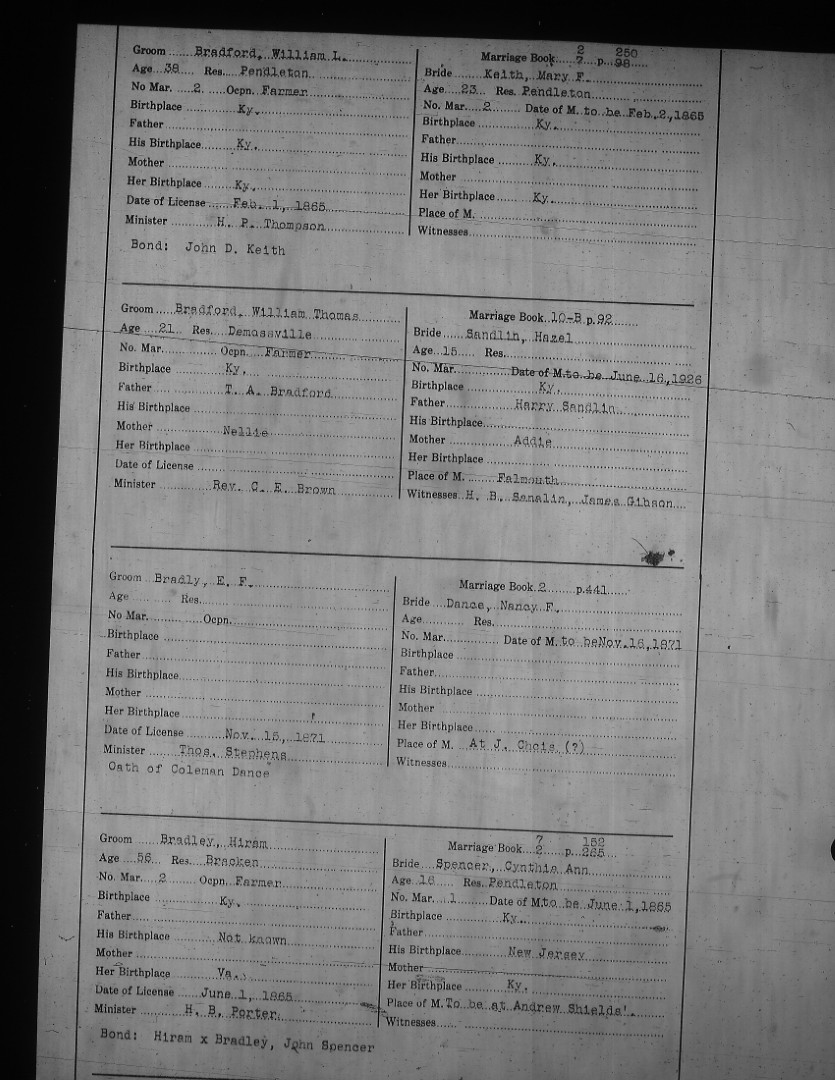 Groom Bradford, William L.
Age 38 Res. Pendleton
No Mar. 2. Ocpn. Farmer
Birthplace Ky.
Father
His Birthplace Ky.
Mother
Her Birthplace Ky.
Date of License Feb. 1, 1865
Minister H. P. Thompson
Bond: John D. Keith
2 250
Marriage Book 7 p. 98
Bride Keith, Mary F.
Age 23 Res. Pendleton
No. Mar. 2 Date of M. to be Feb. 2, 1865
Birthplace Ky.
Father
His Birthplace Ky.
Mother
Her Birthplace Ky.
Place of M.
Witnesses
Groom Bradford, William Thomas
Age 21 Res. Demossville
No. Mar. Ocpn. Farmer
Birthplace Ky.
Father T. A. Bradford
His Birthplace
Mother Nellie
Her Birthplace
Date of License
Minister Rev. C. E. Brown
Marriage Book 10-B p. 92
Bride Sandlin, Hazel
Age 15 Res.
No. Mar. Date of M. to be June 16, 1926
Birthplace Ky.
Father Harry Sandlin
His Birthplace
Mother Addie
Her Birthplace
Place of M. Falmouth
Witnesses H. B. Sanalin, James Gibson
Groom Bradly, E. F.
Age Res.
No Mar. Ocpn.
Birthplace
Father
His Birthplace
Mother
Her Birthplace
Date of License Nov. 15, 1871
Minister Thos. Stephens
Oath of Coleman Dance
Marriage Book 2 p. 441
Bride Dance, Nancy F.
Age Res.
No. Mar. Date of M. to be Nov. 16, 1871
Birthplace
Father
His Birthplace
Mother
Her Birthplace
Place of M. At J. Chois (?)
Witnesses
Groom Bradley, Hiram
Age 56 Res. Bracken
No. Mar. 2 Ocpn. Farmer
Birthplace Ky.
Father
His Birthplace Not known
Mother
Her Birthplace Va.
Date of License June 1, 1865
Minister H. B. Porter
Bond: Hiram x Bradley, John Spencer
7 152
Marriage Book 2 p. 265
Bride Spencer, Cynthie Ann
Age 16 Res. Pendleton
No. Mar. 1 Date of M. to be June 1, 1865
Birthplace Ky.
Father
His Birthplace New Jersey
Mother
Her Birthplace Ky.
Place of M. To be at Andrew Shields'.
Witnesses